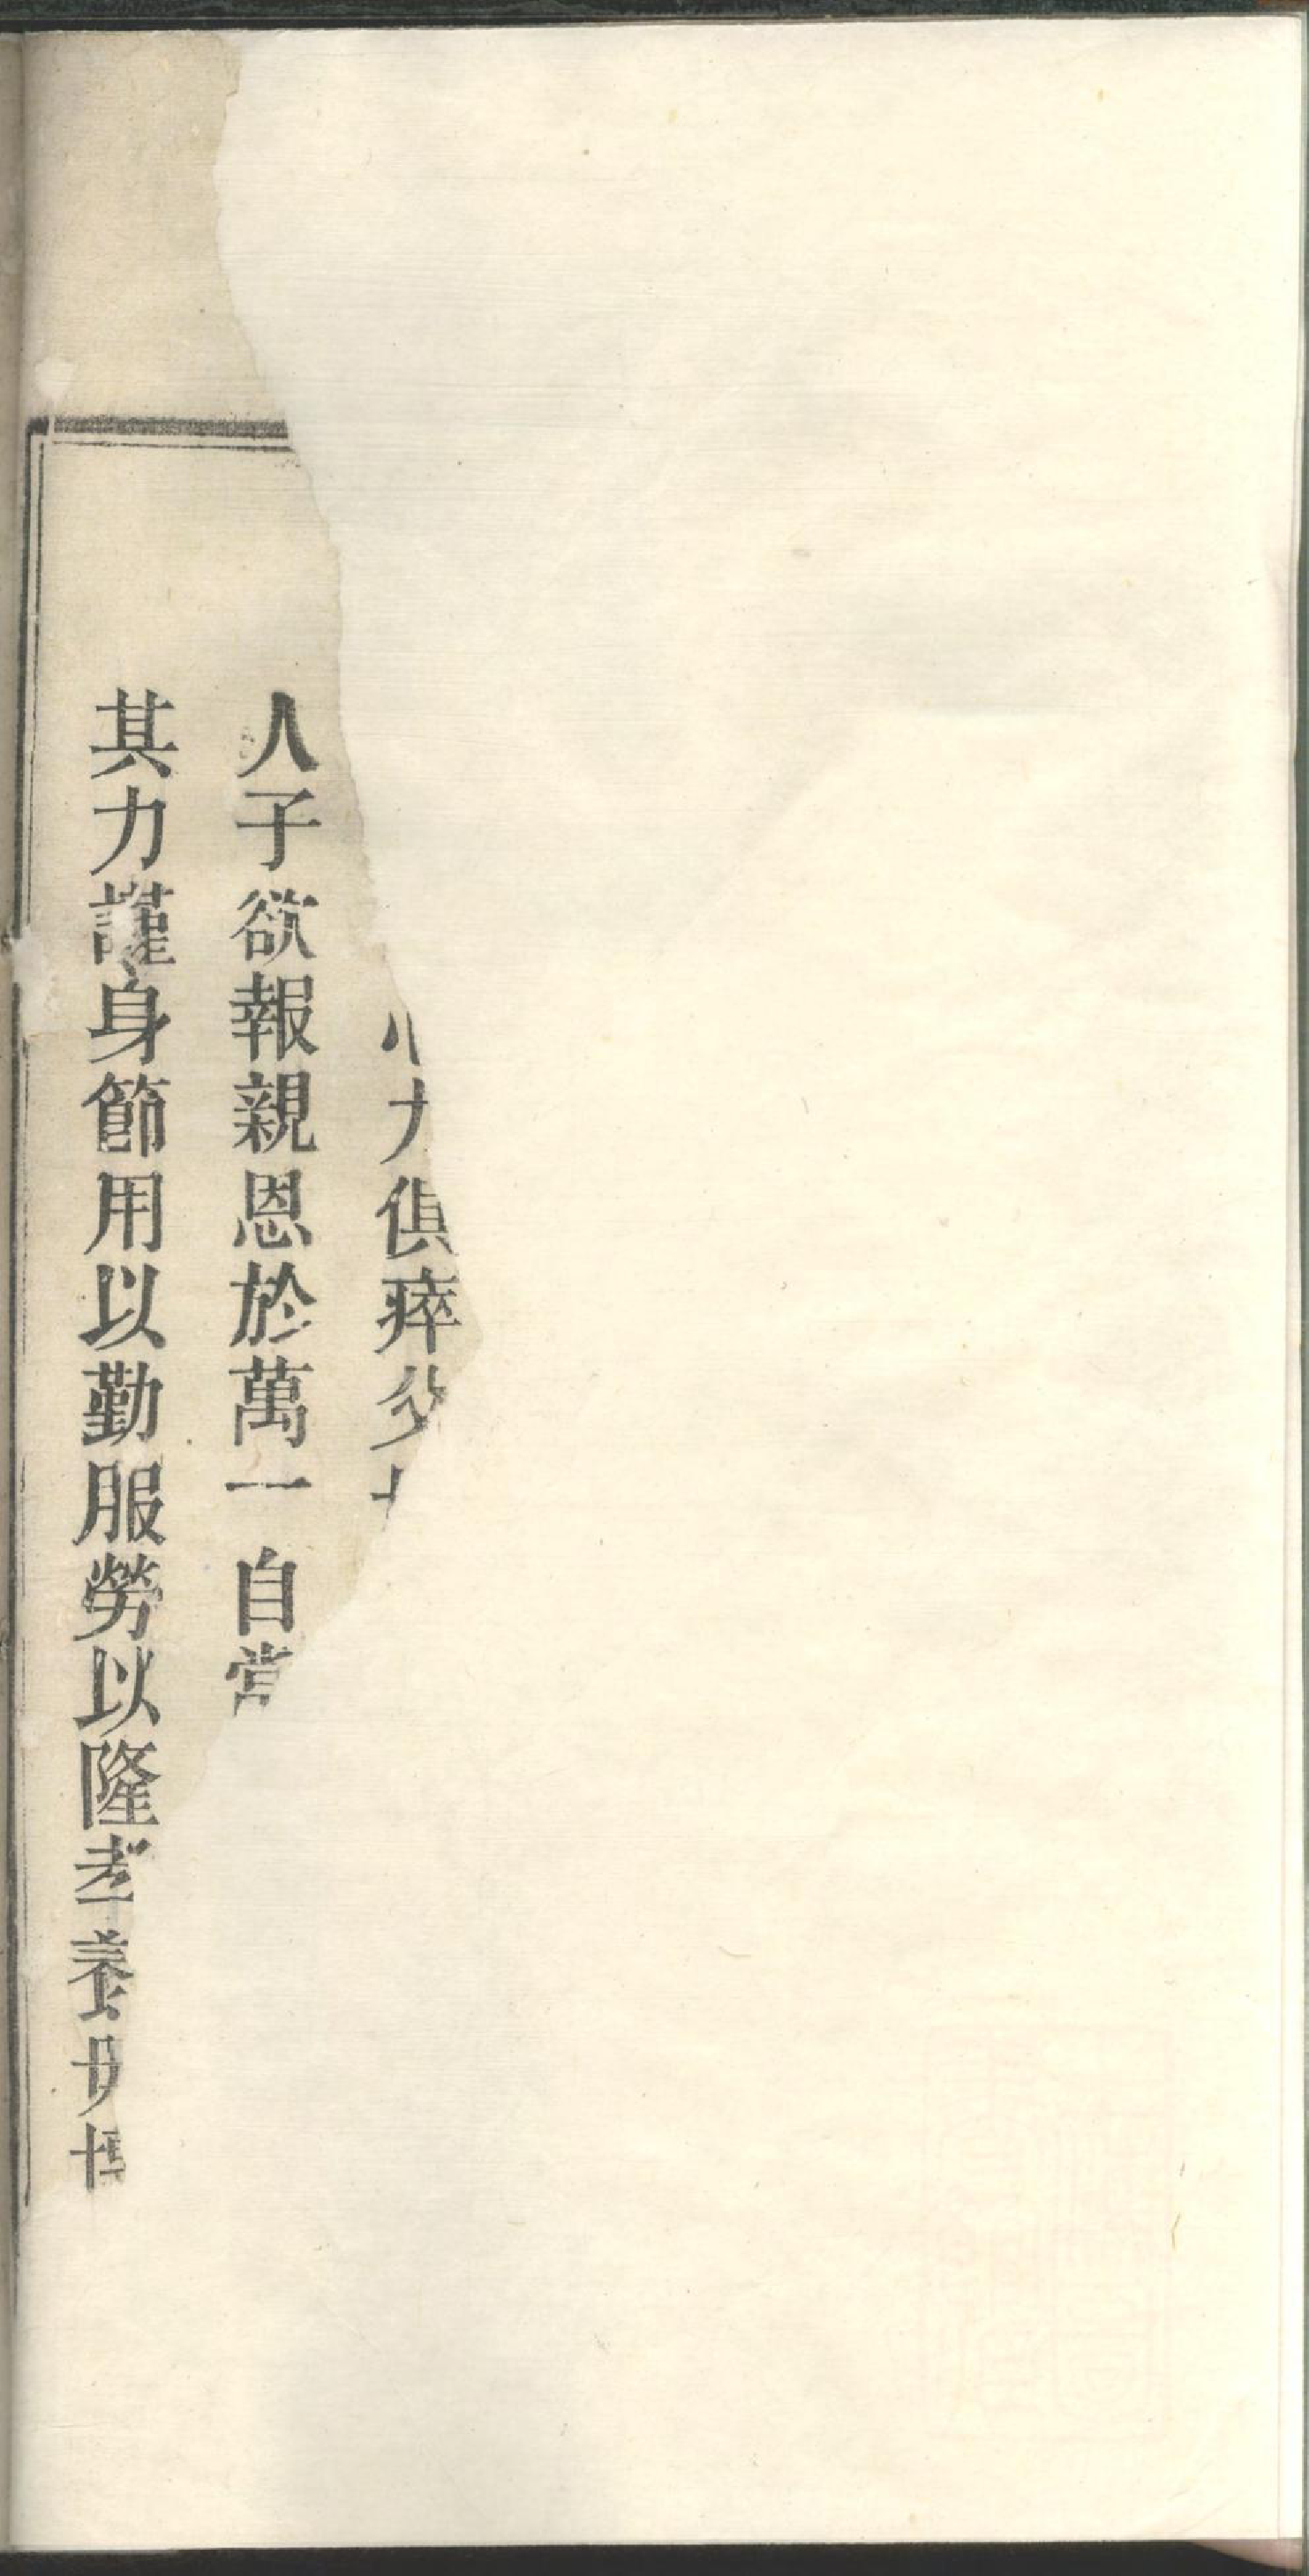 心力俱瘁父
人子欲報親恩於萬一自當
其力謹身節用以勤服勞以隆孝養毋博